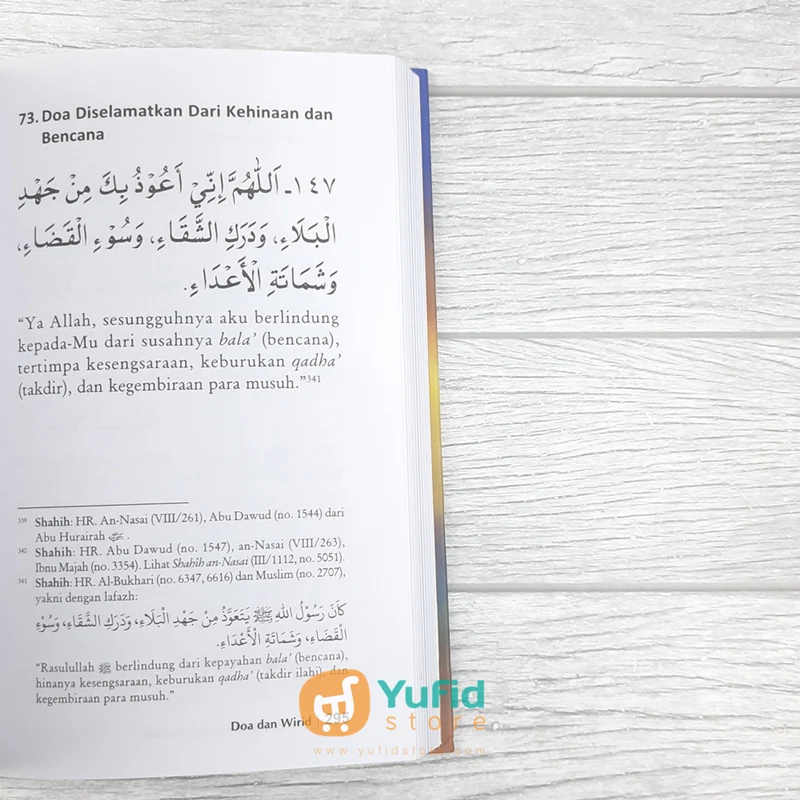 73. Doa Diselamatkan Dari Kehinaan dan
Bencana
١٤٧ـ اَللّٰهُمَّ إِنِّيْ أَعُوْذُ بِكَ مِنْ جَهْدِ
الْبَلَاءِ، وَدَرَكِ الشَّقَاءِ، وَسُوْءِ الْقَضَاءِ،
وَشَمَاتَةِ الْأَعْدَاءِ.
“Ya Allah, sesungguhnya aku berlindung
kepada-Mu dari susahnya bala’ (bencana),
tertimpa kesengsaraan, keburukan qadha’
(takdir), dan kegembiraan para musuh.”341
339 Shahih: HR. An-Nasai (VIII/261), Abu Dawud (no. 1544) dari
Abu Hurairah .
340 Shahih: HR. Abu Dawud (no. 1547), an-Nasai (VIII/263),
Ibnu Majah (no. 3354). Lihat Shahih an-Nasai (III/1112, no. 5051).
341 Shahih: HR. Al-Bukhari (no. 6347, 6616) dan Muslim (no. 2707),
yakni dengan lafazh:
كَانَ رَسُوْلُ اللهِ ﷺ يَتَعَوَّذُ مِنْ جَهْدِ الْبَلَاءِ، وَدَرَكِ الشَّقَاءِ، وَسُوْءِ
الْقَضَاءِ، وَشَمَاتَةِ الْأَعْدَاءِ.
“Rasulullah ﷺ berlindung dari kepayahan bala’ (bencana),
hinanya kesengsaraan, keburukan qadha’ (takdir ilahi), dan
kegembiraan para musuh.”
Doa dan Wirid | 295
Yufid
store
www.yufidstore.com